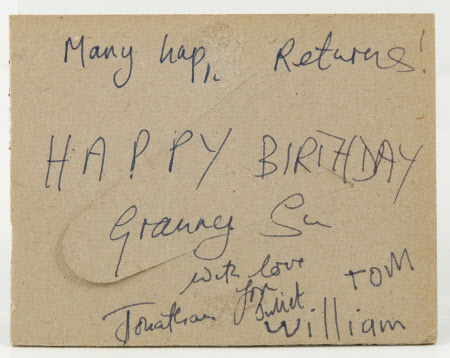 Many happ. Returns!
HAPPY BIRTHDAY
Granny Su
with love
from Juliet Tom
Jonathan William